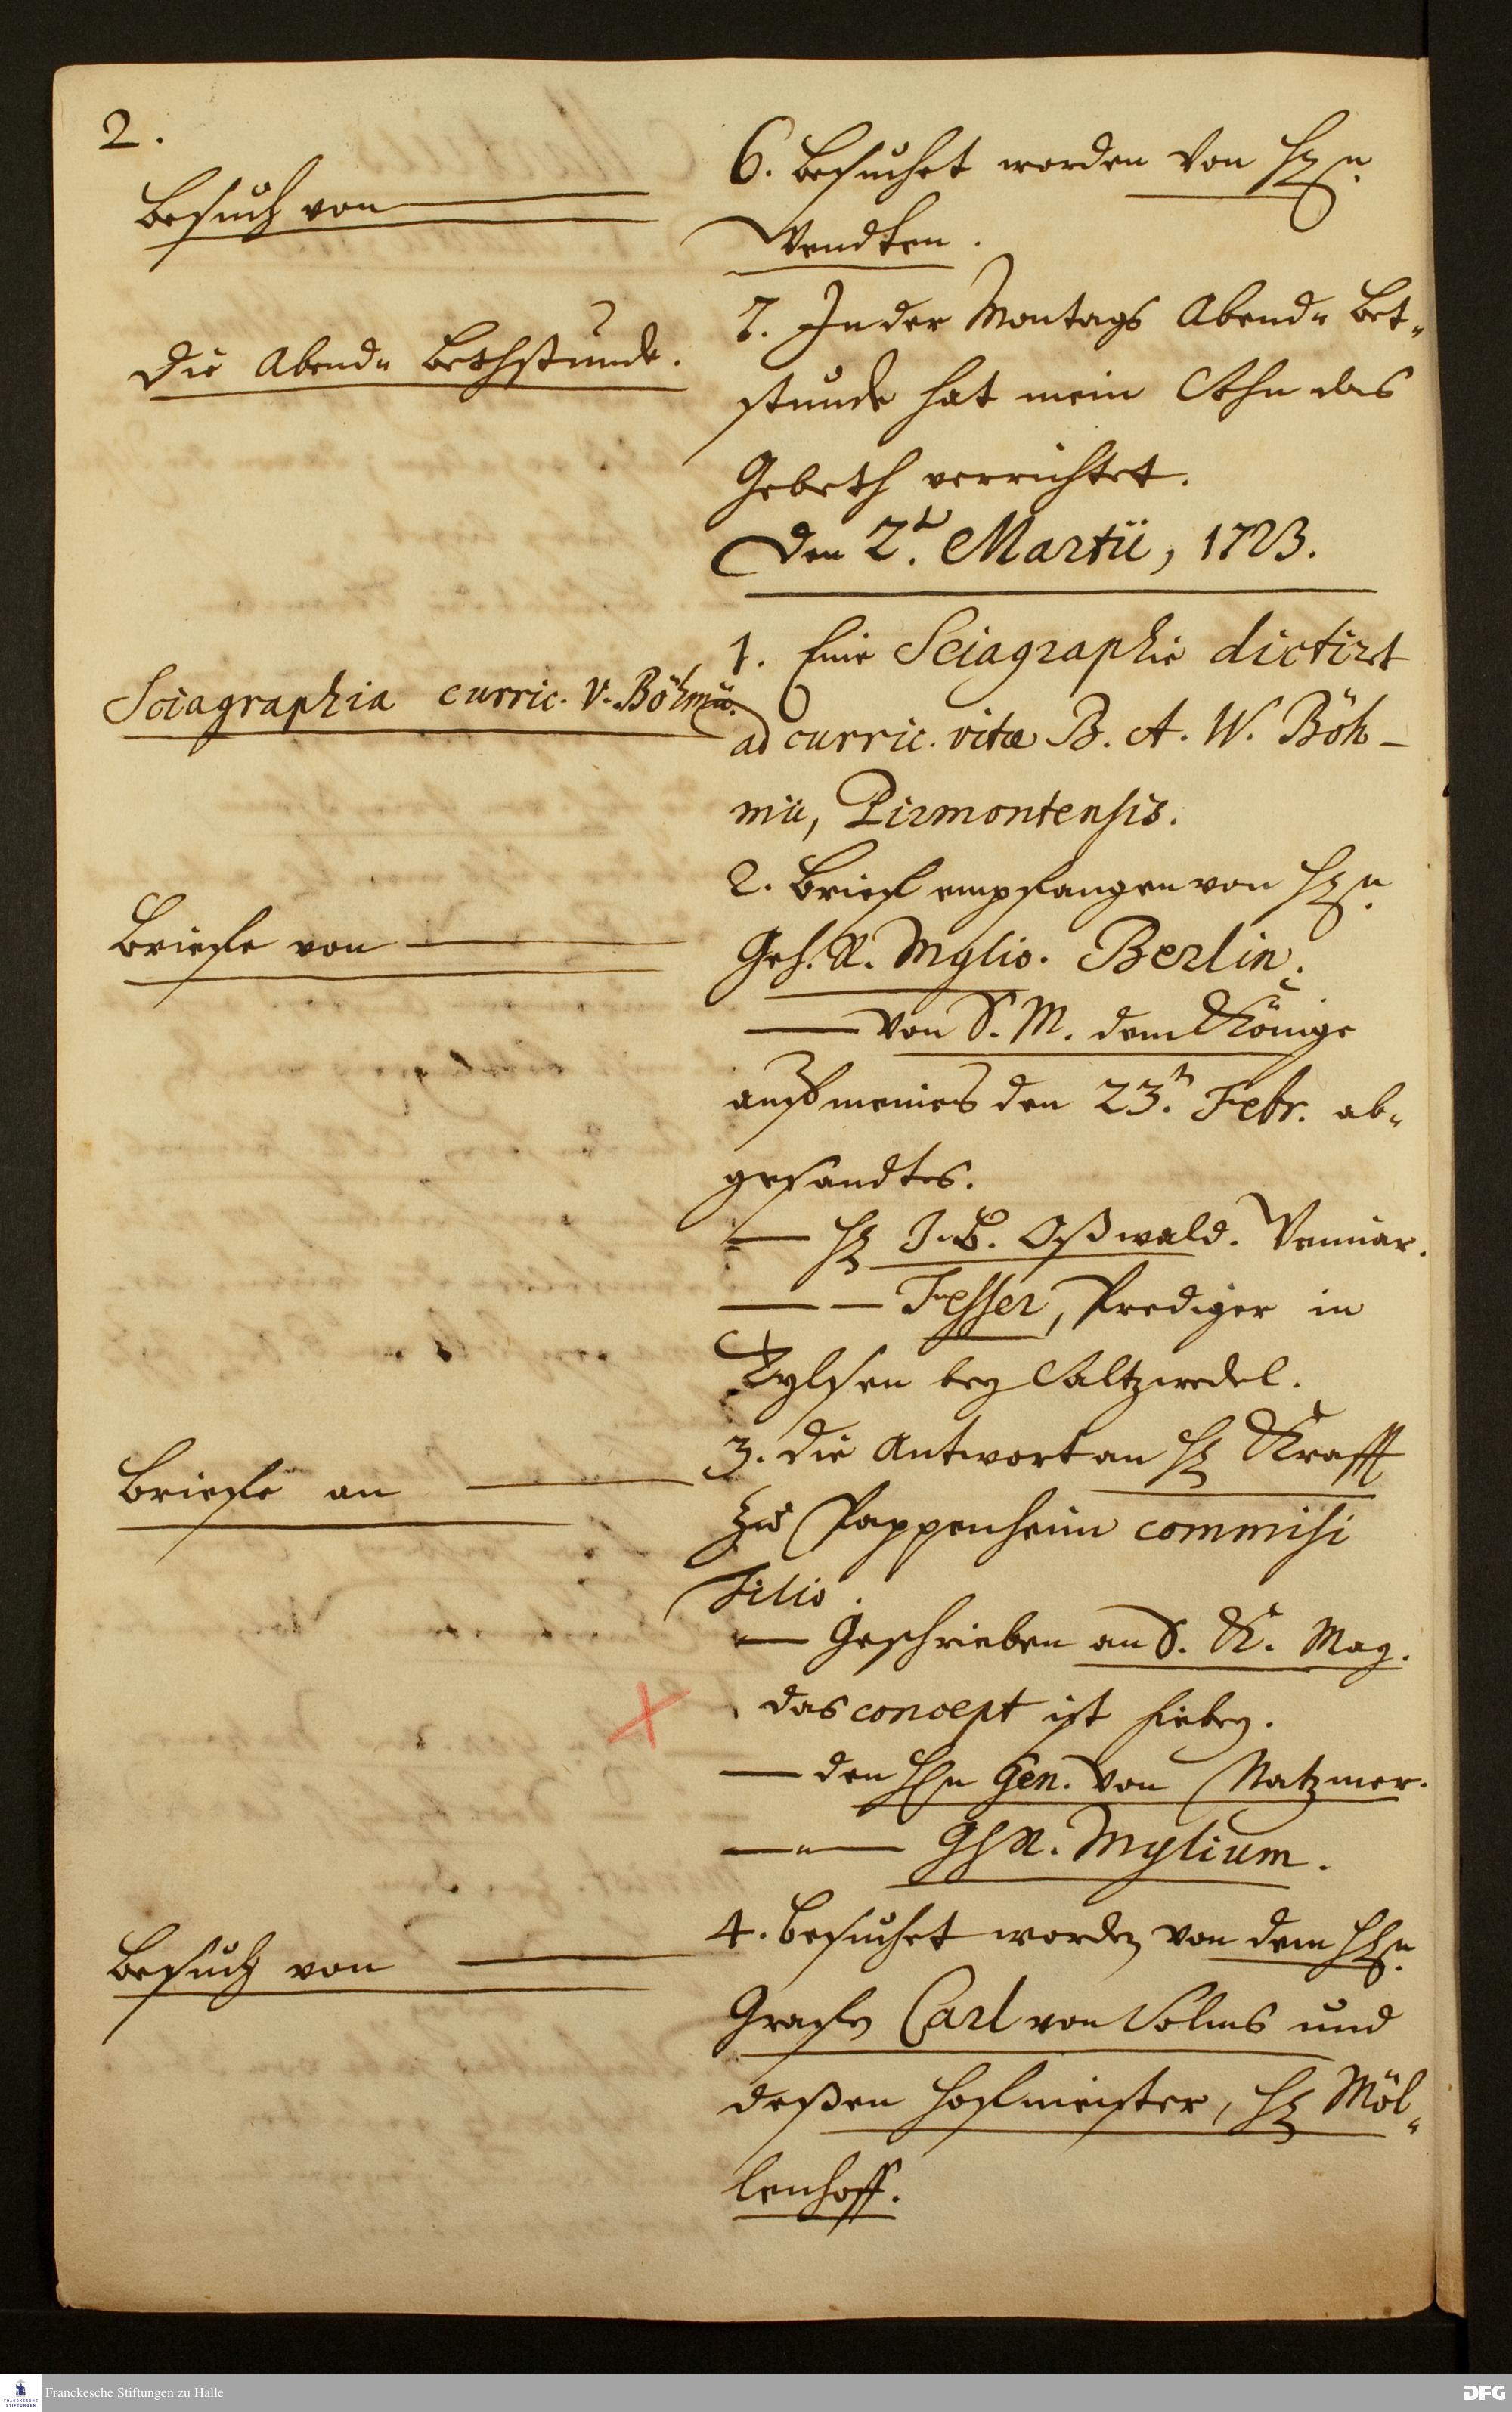 2.
Besuch von
6. Besuchet worden von Hrn.
Wendten.
Die Abend- Bethstunde.
7. In der Montags Abend- Bet-
stunde hat mein Sohn das
Gebeth verrichtet.
Den 2t. Martii, 1723.
Sciagraphia curric. V. Böhmii.
1. Eine Sciagraphie dictirt
ad curric. vitae B. A. W. Böh-
mii, Pirmontensis.
Briefe von
2. Brief empfangen von Hrn.
Geh. R. Mylio. Berlin.
von S. M. dem Könige
auf meines den 23.t Febr. ab-
gesandtes.
Hr J. B. Oßwald.
Fesser, Prediger in
Tylsen bey Saltzwedel.
Briefe an
3. die Antwort an Hr Krafft
zu Pappenheim commisi
Filio.
Geschrieben an S. K. Maj.
das concept ist hiebey.
den Hn Gen. von Natzmer.
GhR. Mylium.
Besuch von
4. Besuchet worden von dem Hn.
Grafen Carl von Solms und
deßen Hofmeister, Hr Möl-
lenhoff.
Franckesche Stiftungen zu Halle
DFG